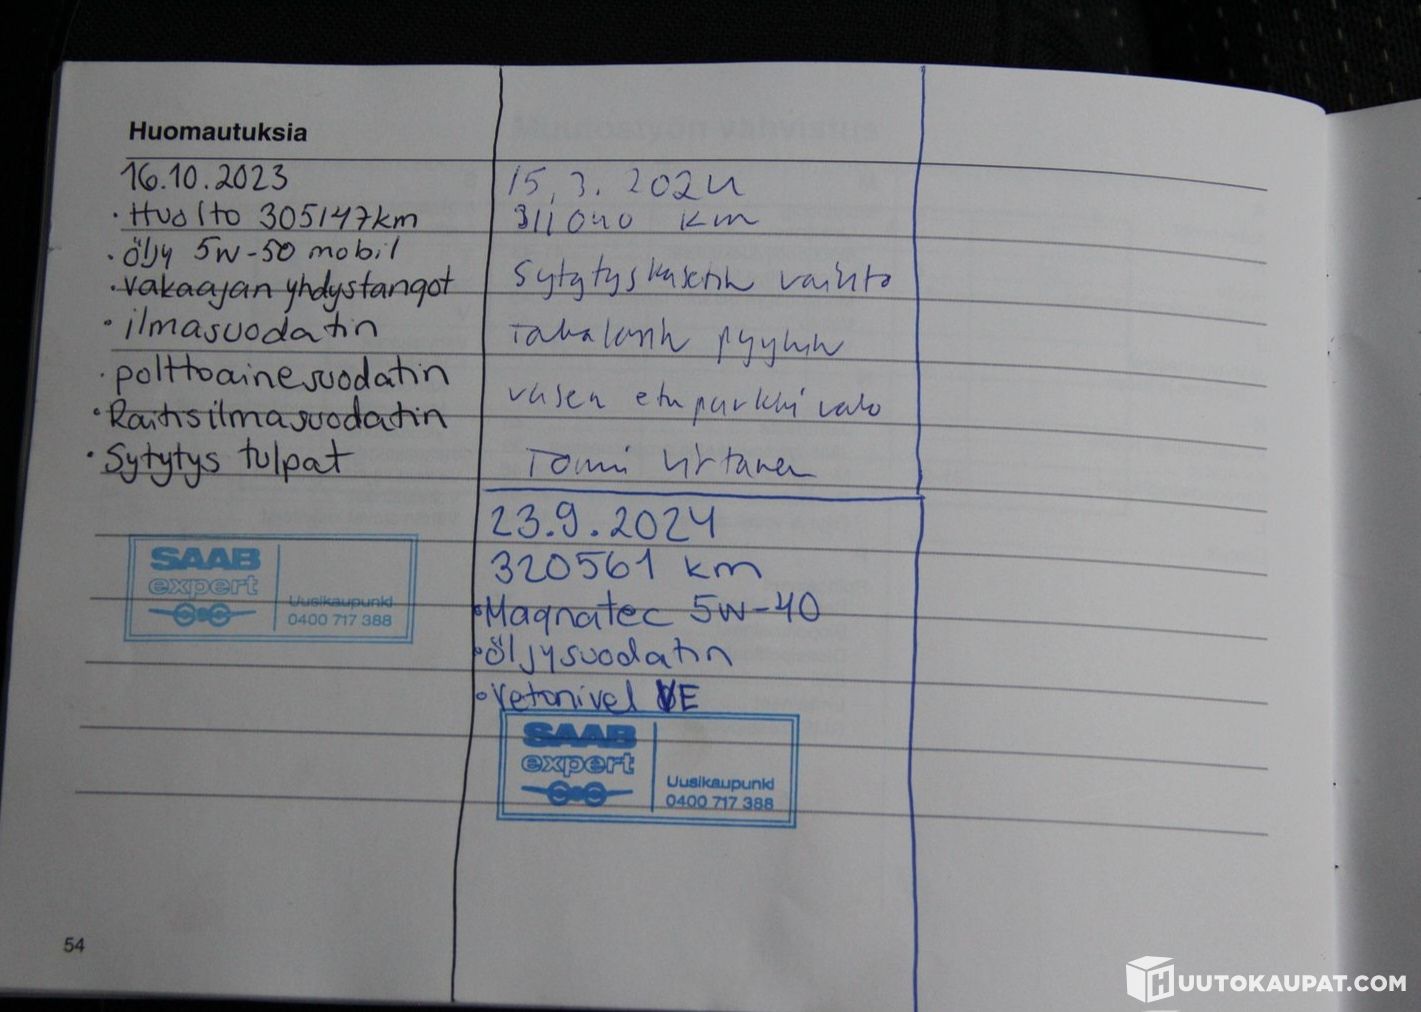 Huomautuksia
16.10.2023
• Huolto 305147km
• öljy 5w-50 mobil
• vakaajan yhdystangot
• ilmasuodatin
• polttoainesuodatin
• Raitisilmasuodatin
• Sytytys tulpat
SAAB
expert
Uusikaupunki
0400 717 388
15.3.2024
311040 km
Sytytyskasetin vaihto
Takalasin pyyhin
vasen etuparkkivalo
Tomi Virtanen
23.9.2024
320561 km
• Magnatec 5w-40
• öljysuodatin
• Vetonivel VE
SAAB
expert
Uusikaupunki
0400 717 388
54
HUUTOKAUPAT.COM